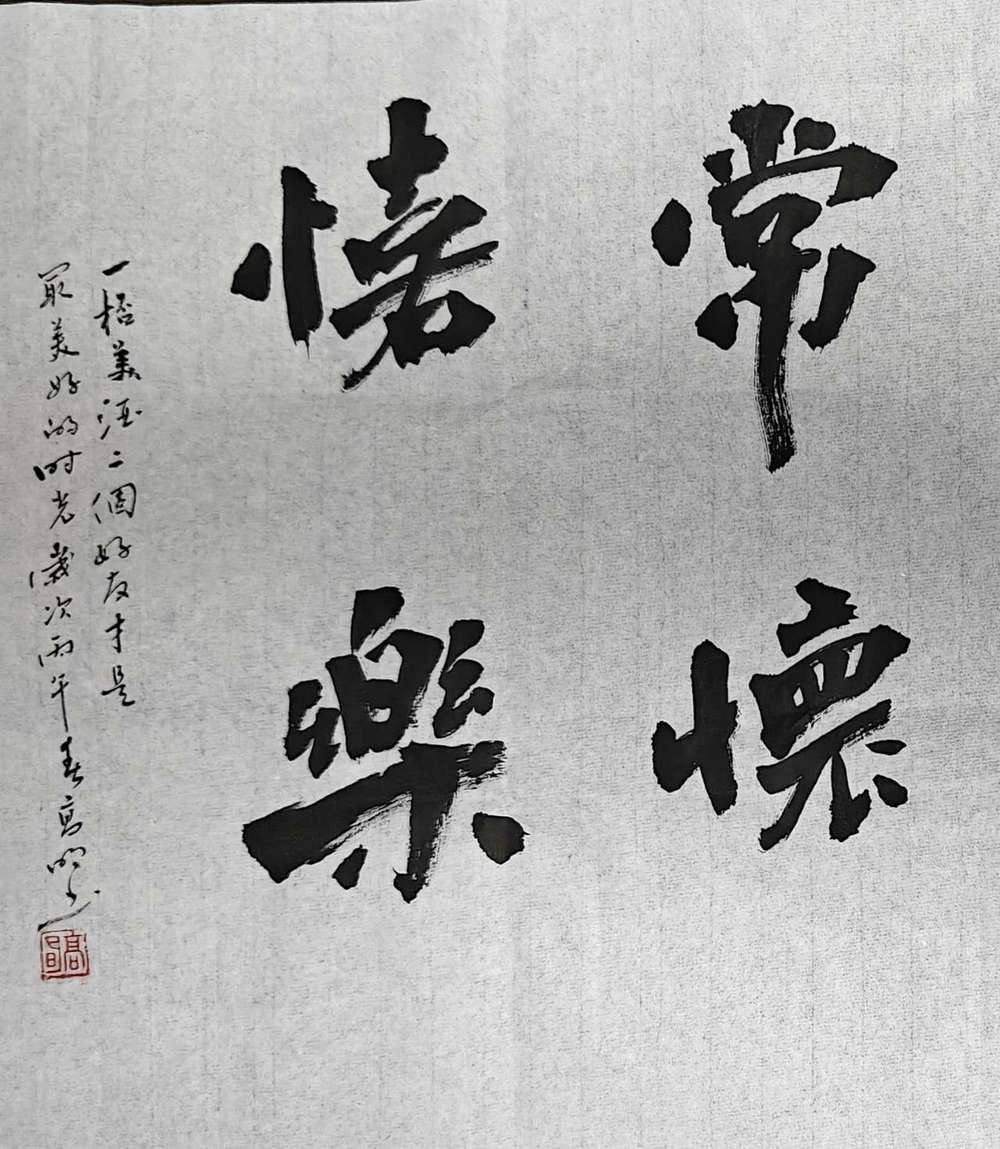 常懷
憘樂
一桮美酒二個好友才是
最美好的时光歲次丙午春高明书